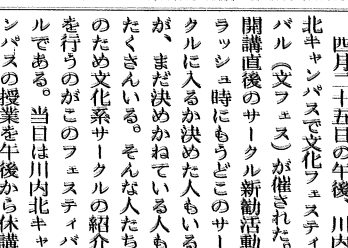 四月二十五日の午後、川内
北キャンパスで文化フェスティ
バル（文フェス）が催された。
開講直後のサークル新勧活動
ラッシュ時にもうどこのサー
クルに入るか決めた人もいる
が、まだ決めかねている人も
たくさんいる。そんな人たち
のため文化系サークルの紹介
を行うのがこのフェスティバ
ルである。当日は川内北キャ
ンパスの授業を午後から休講